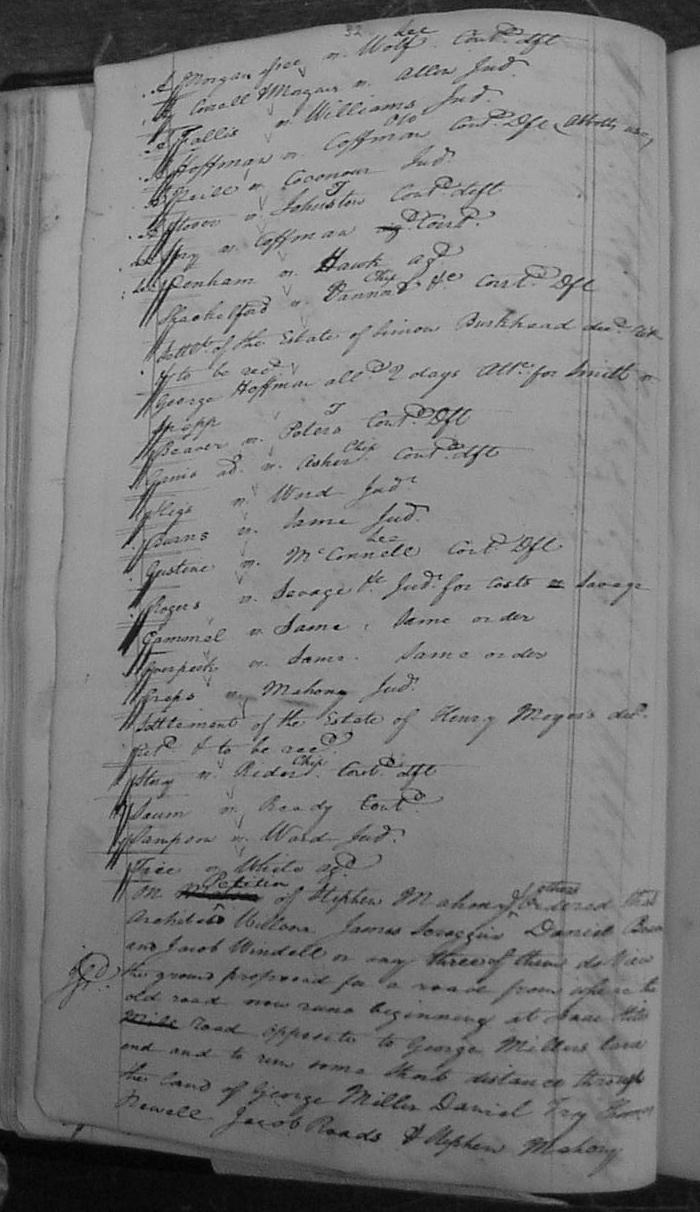 32
Morgan assee vs. Wolf Contd. dft
Corall & Morgan vs. Allen Jud.
Fallis vs Williams Jud.
Hoffman vs. Coffman Contd. Dft
Neill vs. Coconour Jud.
Stover vs. Johnston Contd. dft
Fry vs. Coffman Contd.
Denham vs. Hawk agd.
Shackelford vs. Vannort &c Contd. Dft
Settlt. of the Estate of Simon Burkhead decd.
& to be recd.
George Hoffman alld. 2 days Attce. for Smith vs
Beaver vs. Peters Contd. Dft
Ganis ad. vs. Asher Contd. dft
vs. Word Judt.
Burns vs. Same Jud.
Gustine vs. McConnell Contd. Dft
Rogers vs. Savage &c. Judt. for Costs vs Savage
Gammel vs. Same. Same order
Overpeck vs. Same. Same order
Creps vs. Mahony Jud.
Settlement of the Estate of Henry Moyers decd.
retd. & to be recd.
Story vs. Rider Contd. dft
Saum vs. Ready Contd.
Sampson vs. Ward Jud.
Free vs White agd.
On Petition of Stephen Mahony & others Ordered that
James Scroggin Daniel
and Jacob Windell or any three of them do View
the ground proposed for a road from where the
old road now runs beginning at Isaac Hites
Mill road opposite to George Millers lane
end and to run some short distance through
the land of George Miller Daniel Fry Thomas
Newell Jacob Roads & Stephen Mahony